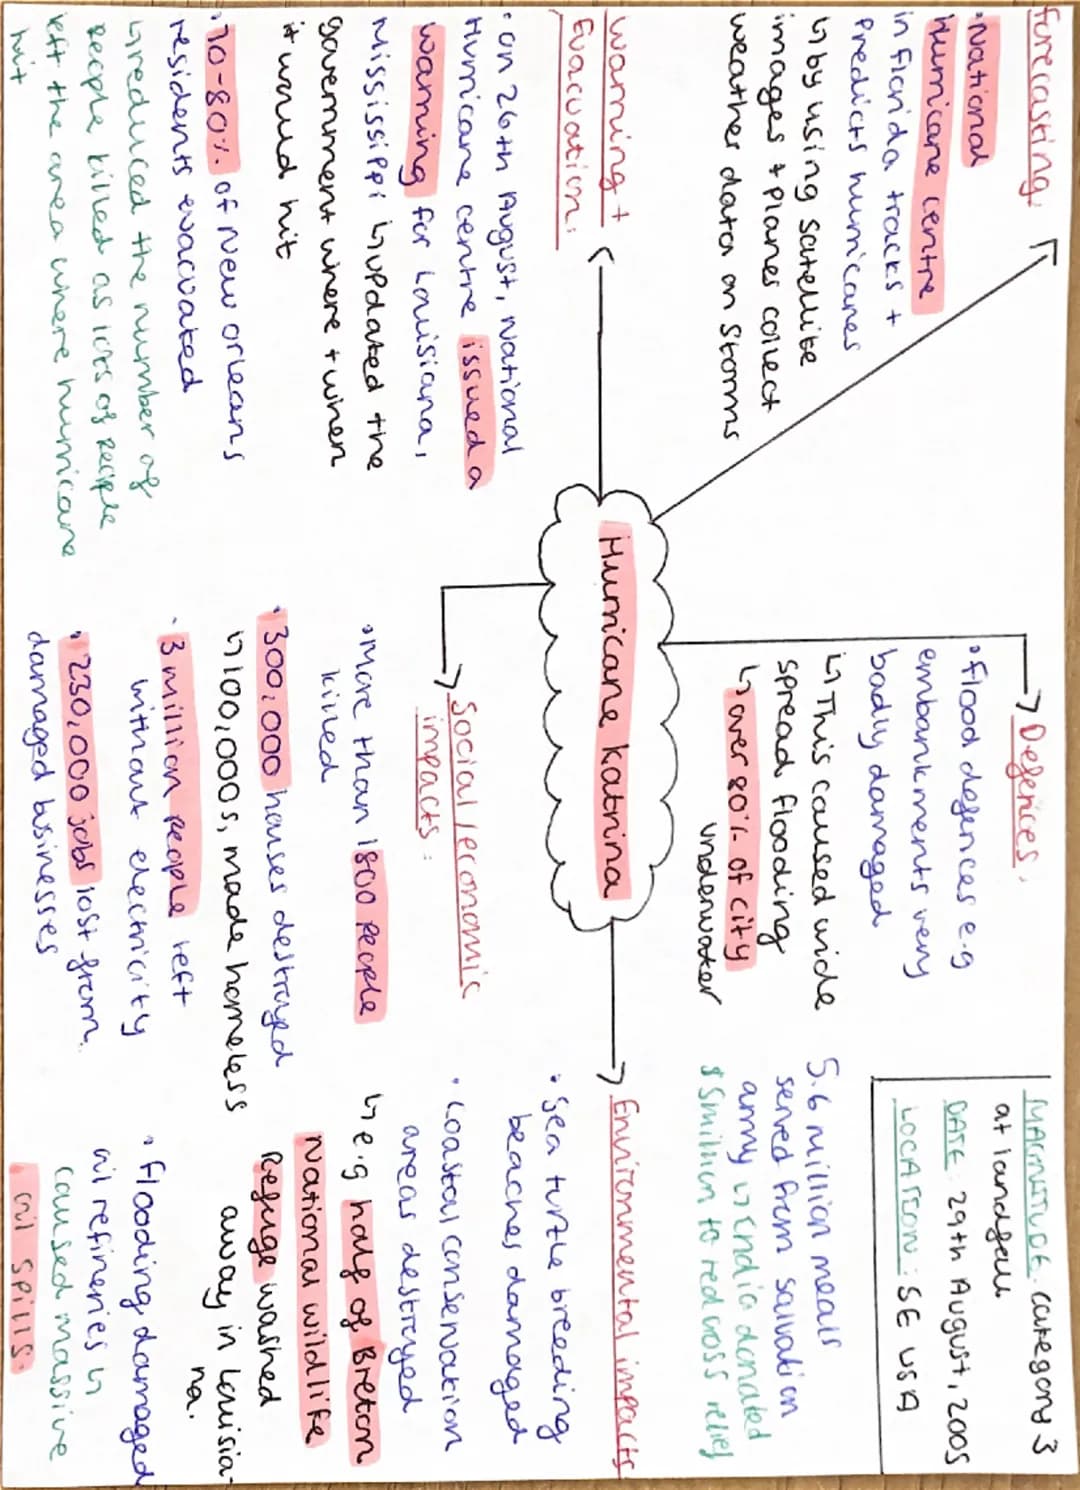 Forecasting:
• National
Hurricane centre
in florida tracks +
predicts hurricanes
↳ by using satellite
images + planes collect
weather data on storms
Warning +
Evacuation:
• on 26th August, National
Hurricane centre issued a
warning for Louisiana,
Mississippi ↳ updated the
government where + when
it would hit
• 70-80% of New orleans
residents evacuated
↳ reduced the number of
people killed as lots of people
left the area where hurricane
hit
Hurricane Katrina
Defences.
• flood defences e.g
embankments very
badly damaged
↳ This caused wide
spread flooding
↳ over 80% of city
underwater
Social/economic
impacts:
• More than 1800 people
killed
• 300,000 houses destroyed
↳ 100,000s, made homeless
• 3 million people left
without electricity
• 230,000 jobs lost from
damaged businesses
MAGNITUDE. category 3
at landfall
DATE: 29th August, 2005
LOCATION: SE USA
5.6 million meals
served from salvation
army ↳ India donated
$5million to red cross relief
Environmental impacts
• Sea turtle breeding
beaches damaged
• Coastal conservation
areas destroyed
↳ e.g half of Breton
National wildlife
Refuge washed
away in Louisia-
na.
• flooding damaged
oil refineries ↳
caused massive
oil spills.